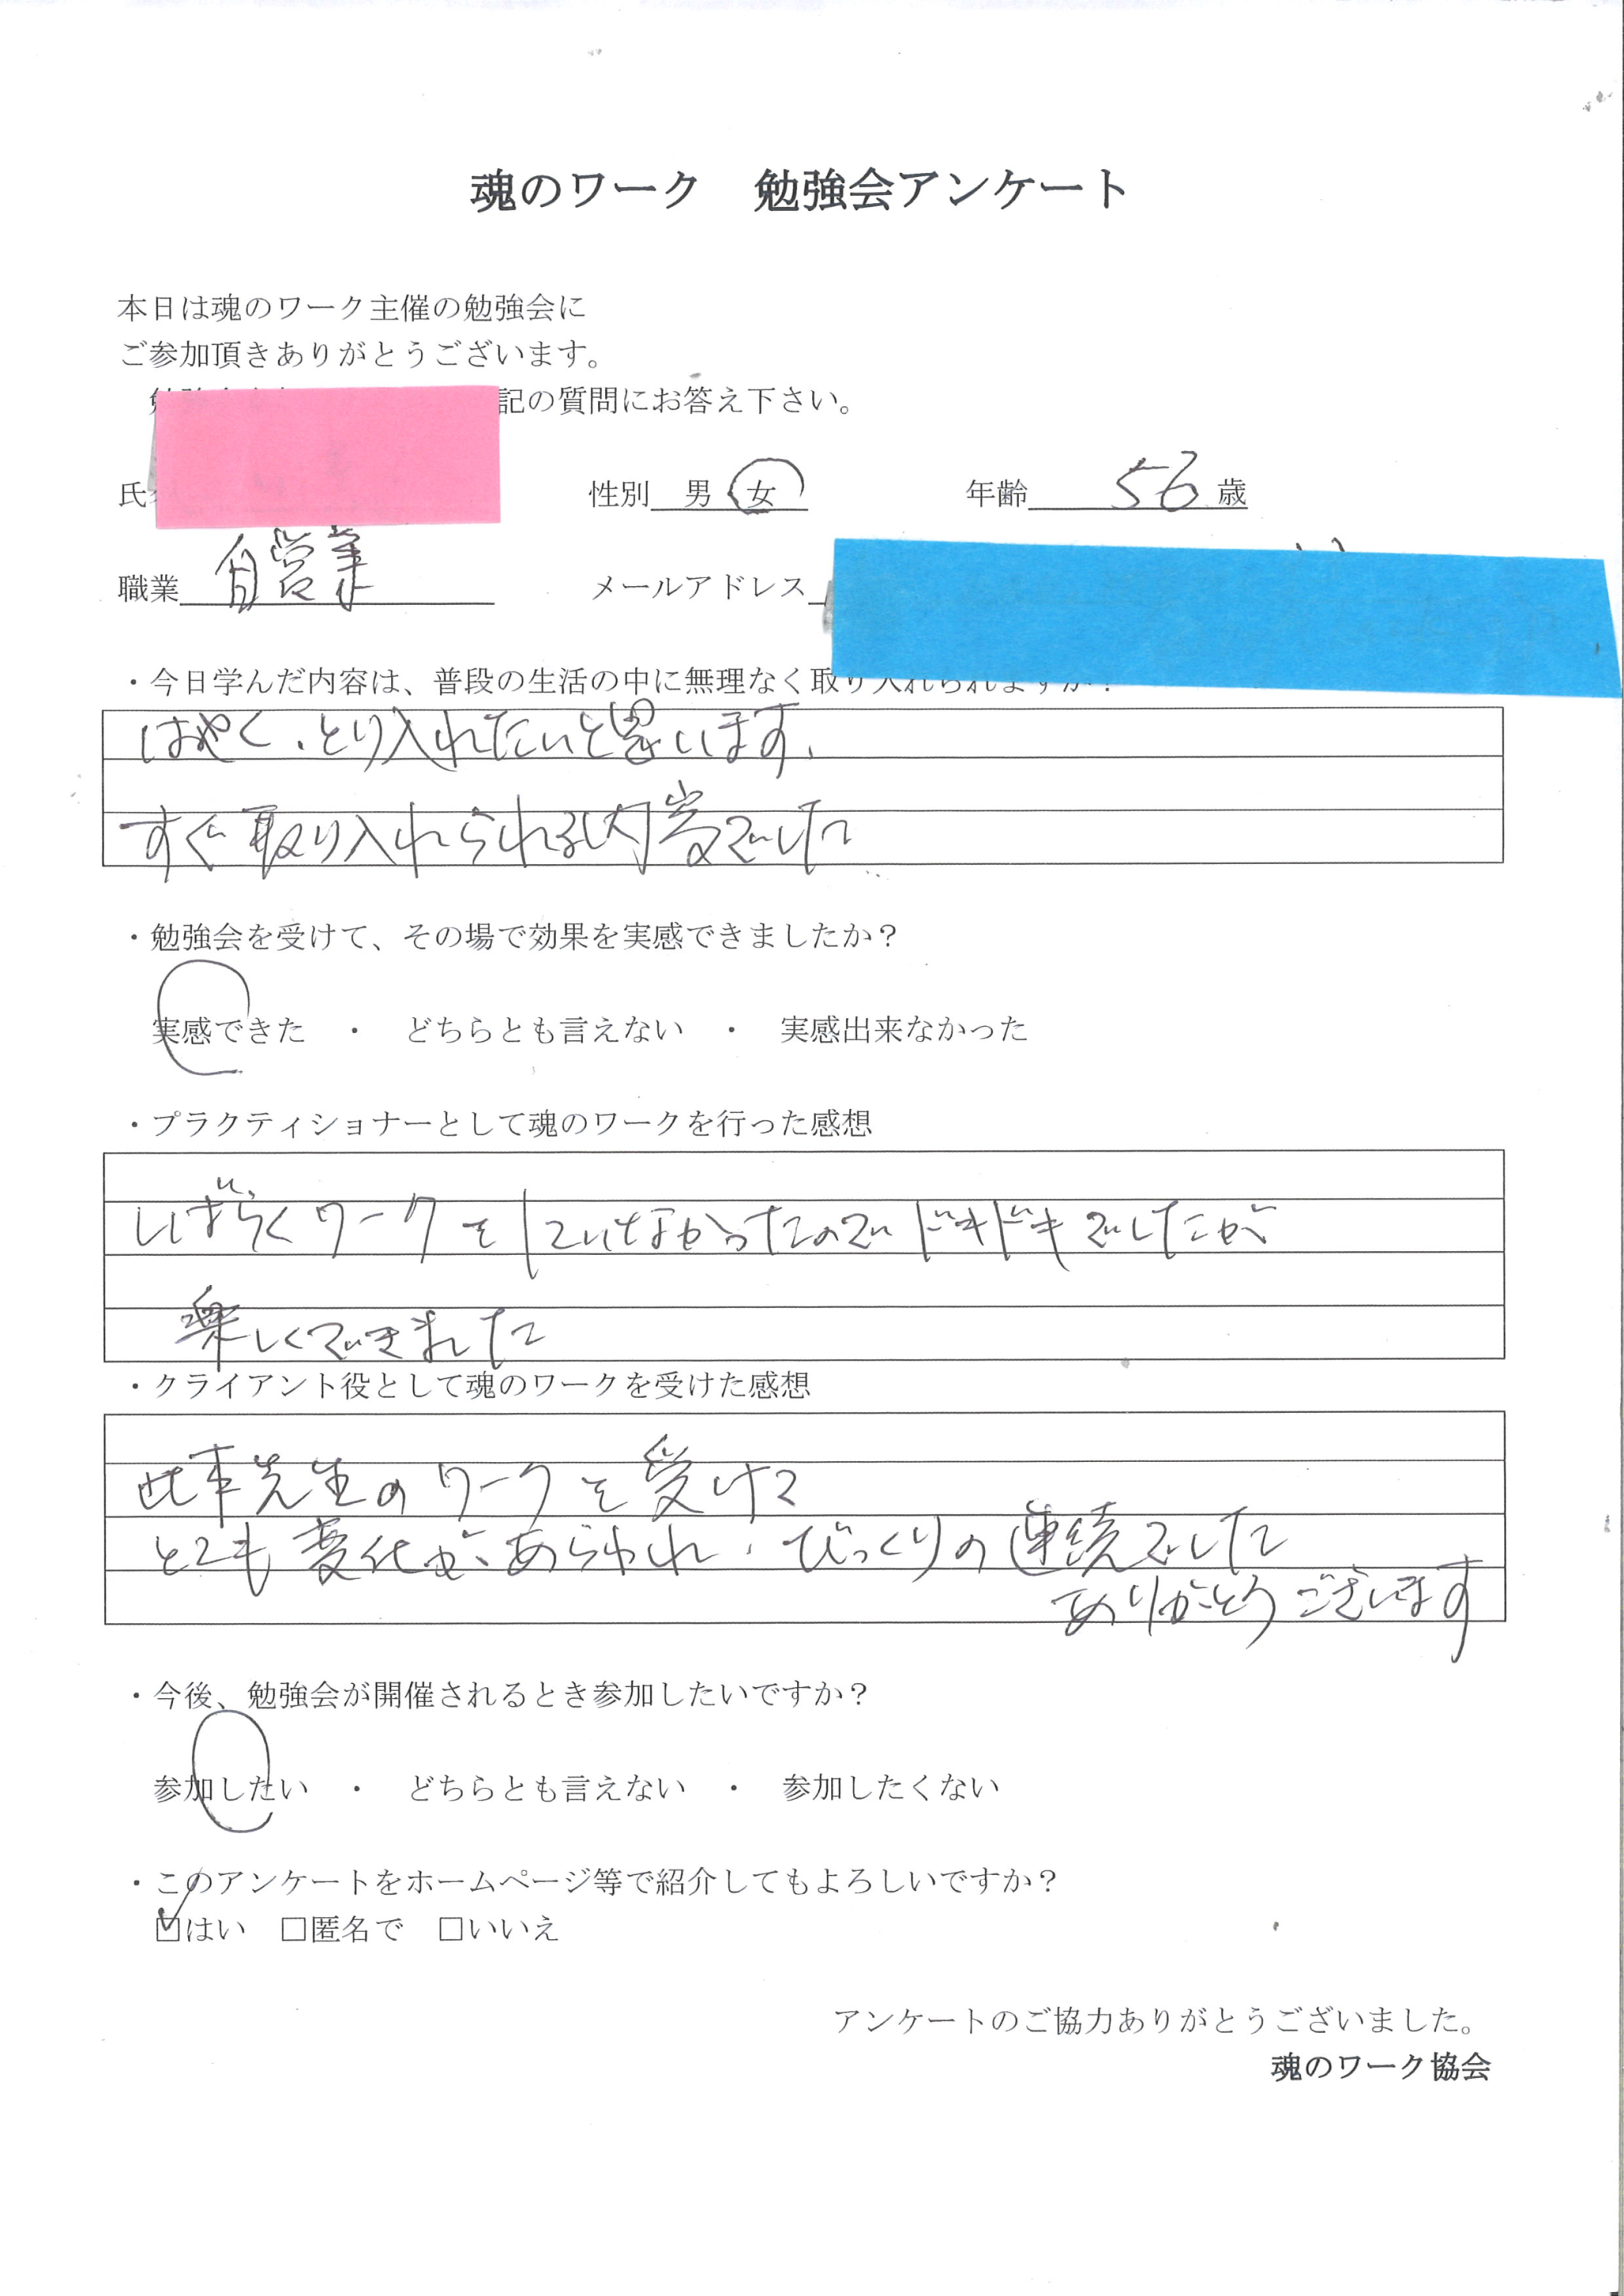 魂のワーク　勉強会アンケート
本日は魂のワーク主催の勉強会に
ご参加頂きありがとうございます。
記の質問にお答え下さい。
氏 性別 男 女 年齢 56 歳
職業 自営業 メールアドレス
・今日学んだ内容は、普段の生活の中に無理なく取り入れられますか？
はやく、とり入れたいと思います、
すぐ取り入れられる内容でした
・勉強会を受けて、その場で効果を実感できましたか？
実感できた　・　どちらとも言えない　・　実感出来なかった
・プラクティショナーとして魂のワークを行った感想
しばらくワークをしていなかったのでドキドキでしたが
楽しくできました
・クライアント役として魂のワークを受けた感想
先生のワークを受けて
とても変化が、あらわれ、びっくりの連続でした
ありがとうございます
・今後、勉強会が開催されるとき参加したいですか？
参加したい　・　どちらとも言えない　・　参加したくない
・このアンケートをホームページ等で紹介してもよろしいですか？
☑はい　□匿名で　□いいえ
アンケートのご協力ありがとうございました。
魂のワーク協会